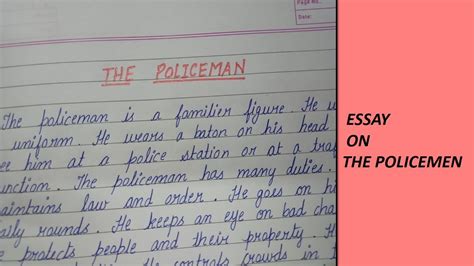 Page No.
Date:
THE POLICEMAN
The policeman is a familier figure. He w
uniform. He wears a baton on his head
ee him at a police station or at a tra
unction. The policeman has many duties.
aintains law and order. He goes on hi
aily rounds. He keeps an eye on bad cha
e protects people and their property. H
He controls crowds in
ESSAY
ON
THE POLICEMEN